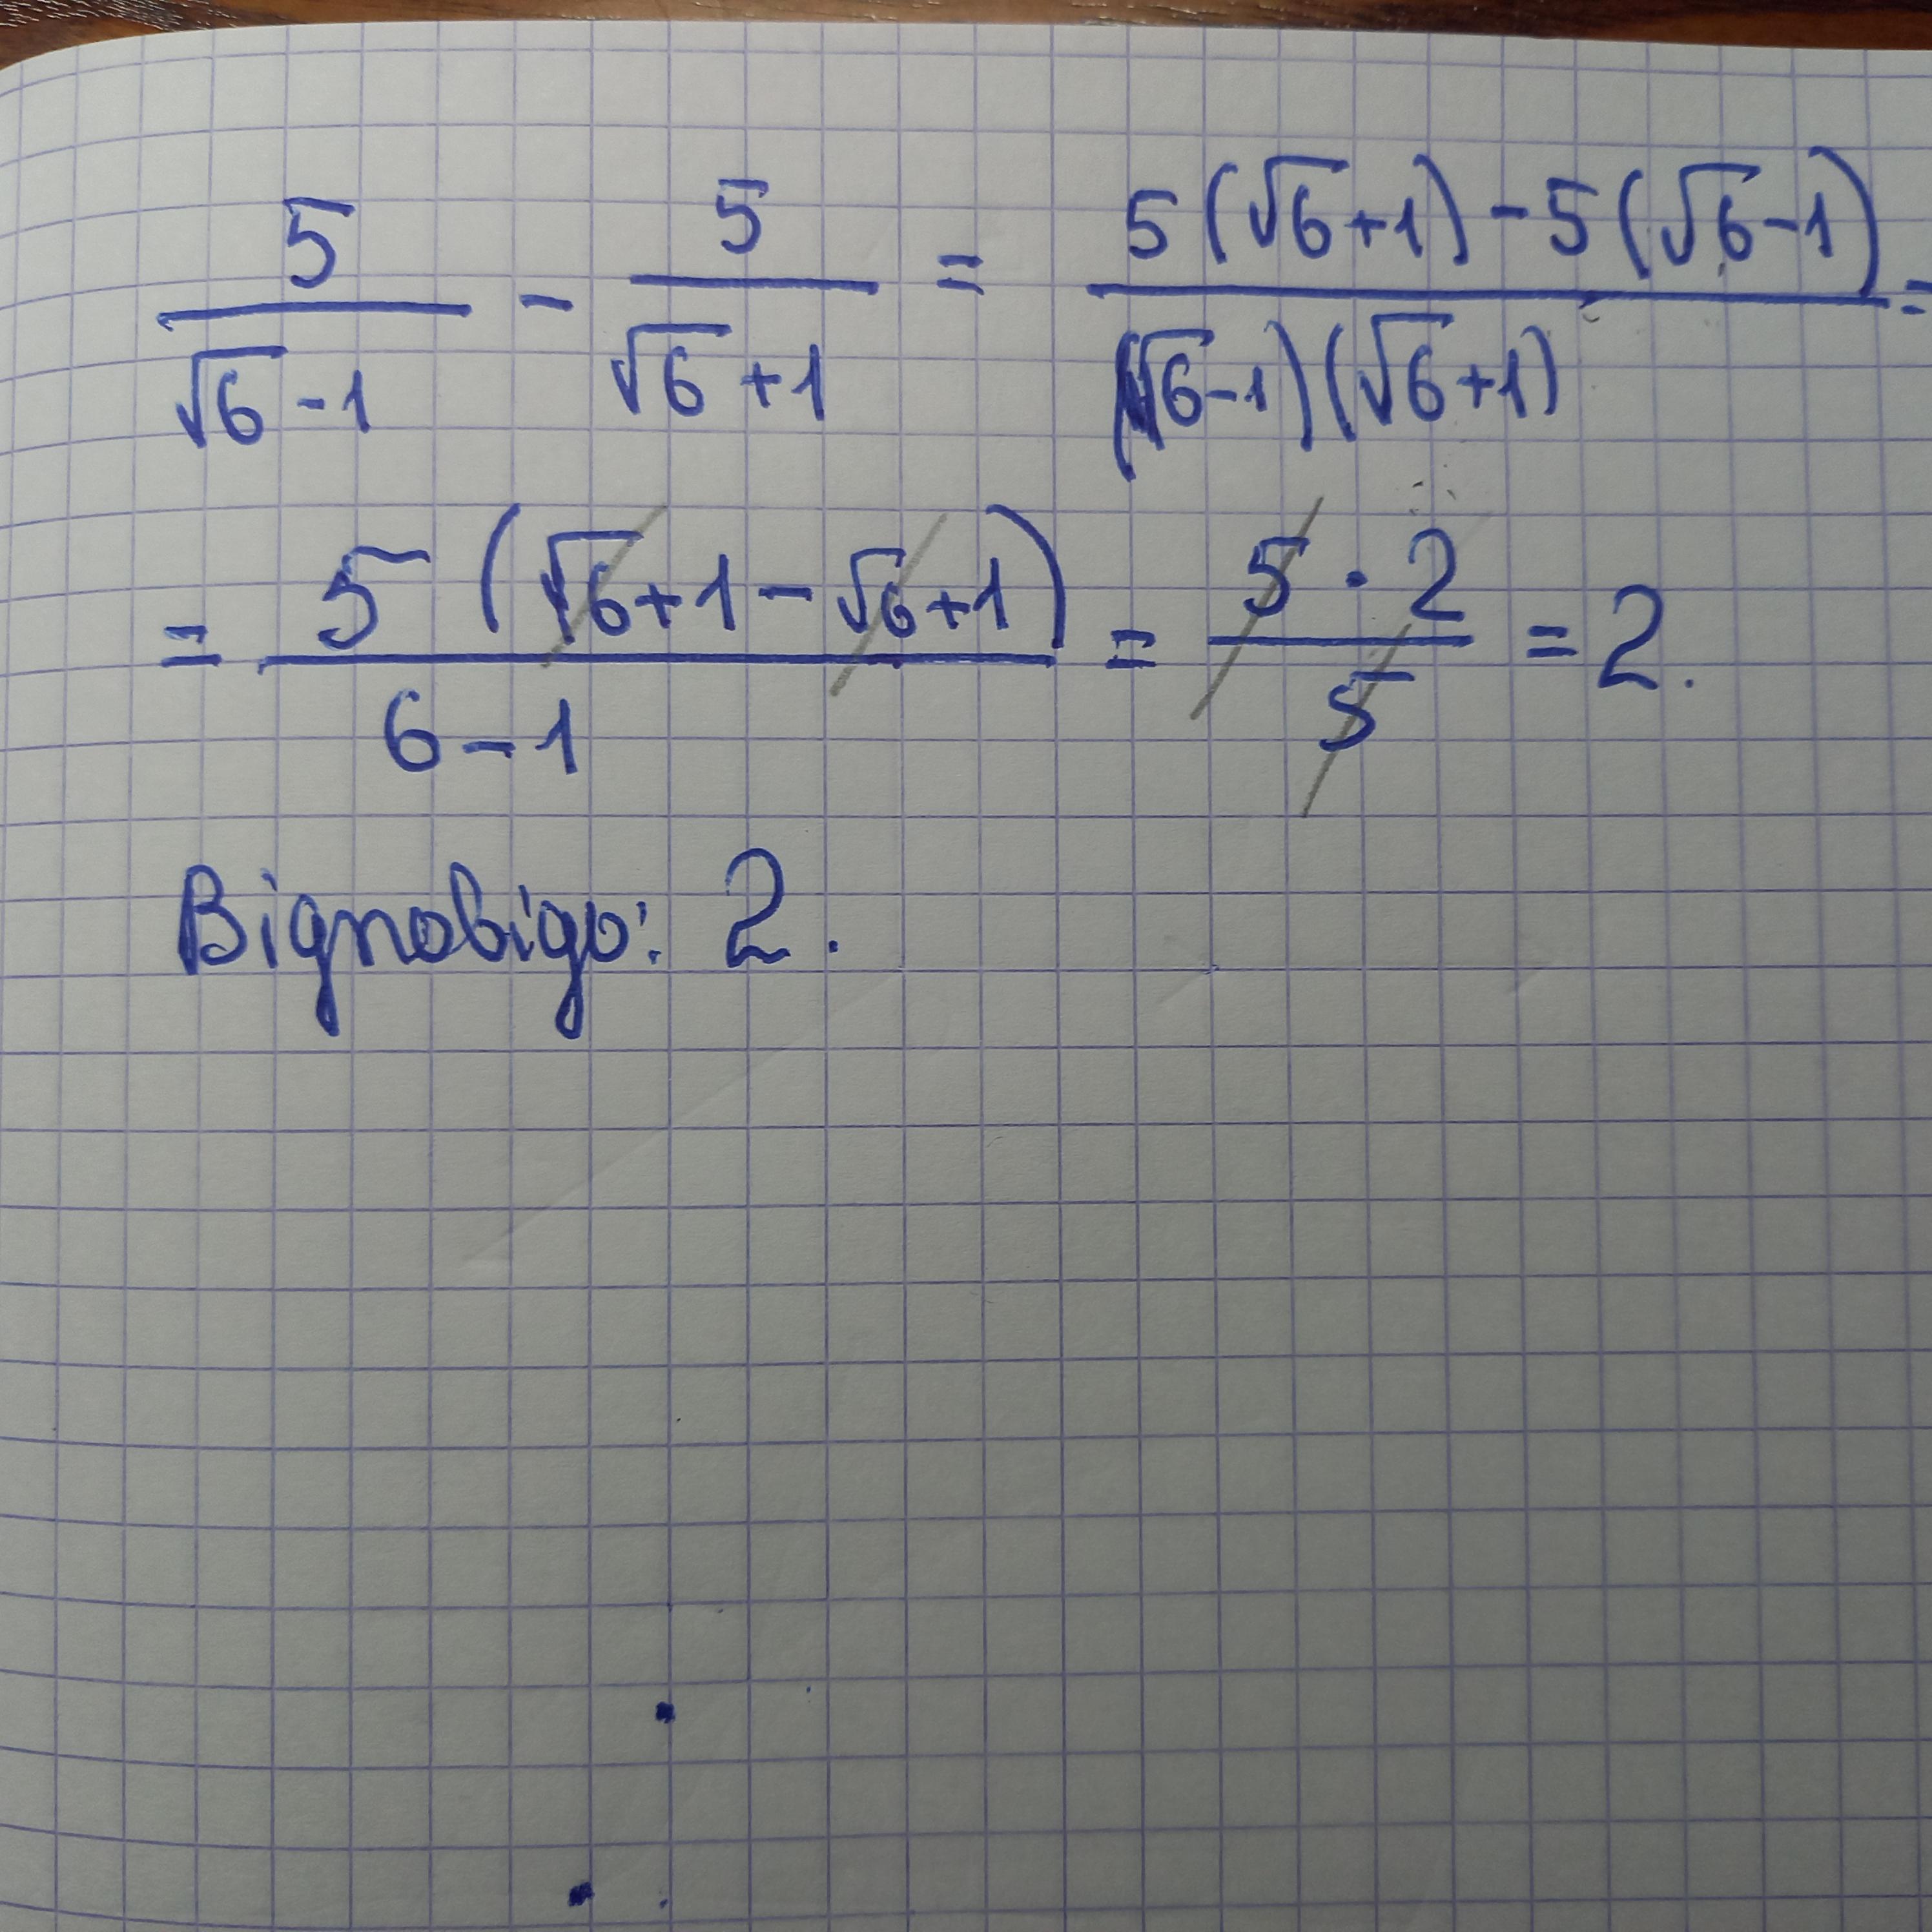 5/(√6-1) - 5/(√6+1) = (5(√6+1)-5(√6-1))/((√6-1)(√6+1)) =
= 5(√6+1-√6+1)/(6-1) = (5·2)/5 = 2.
Відповідь: 2.